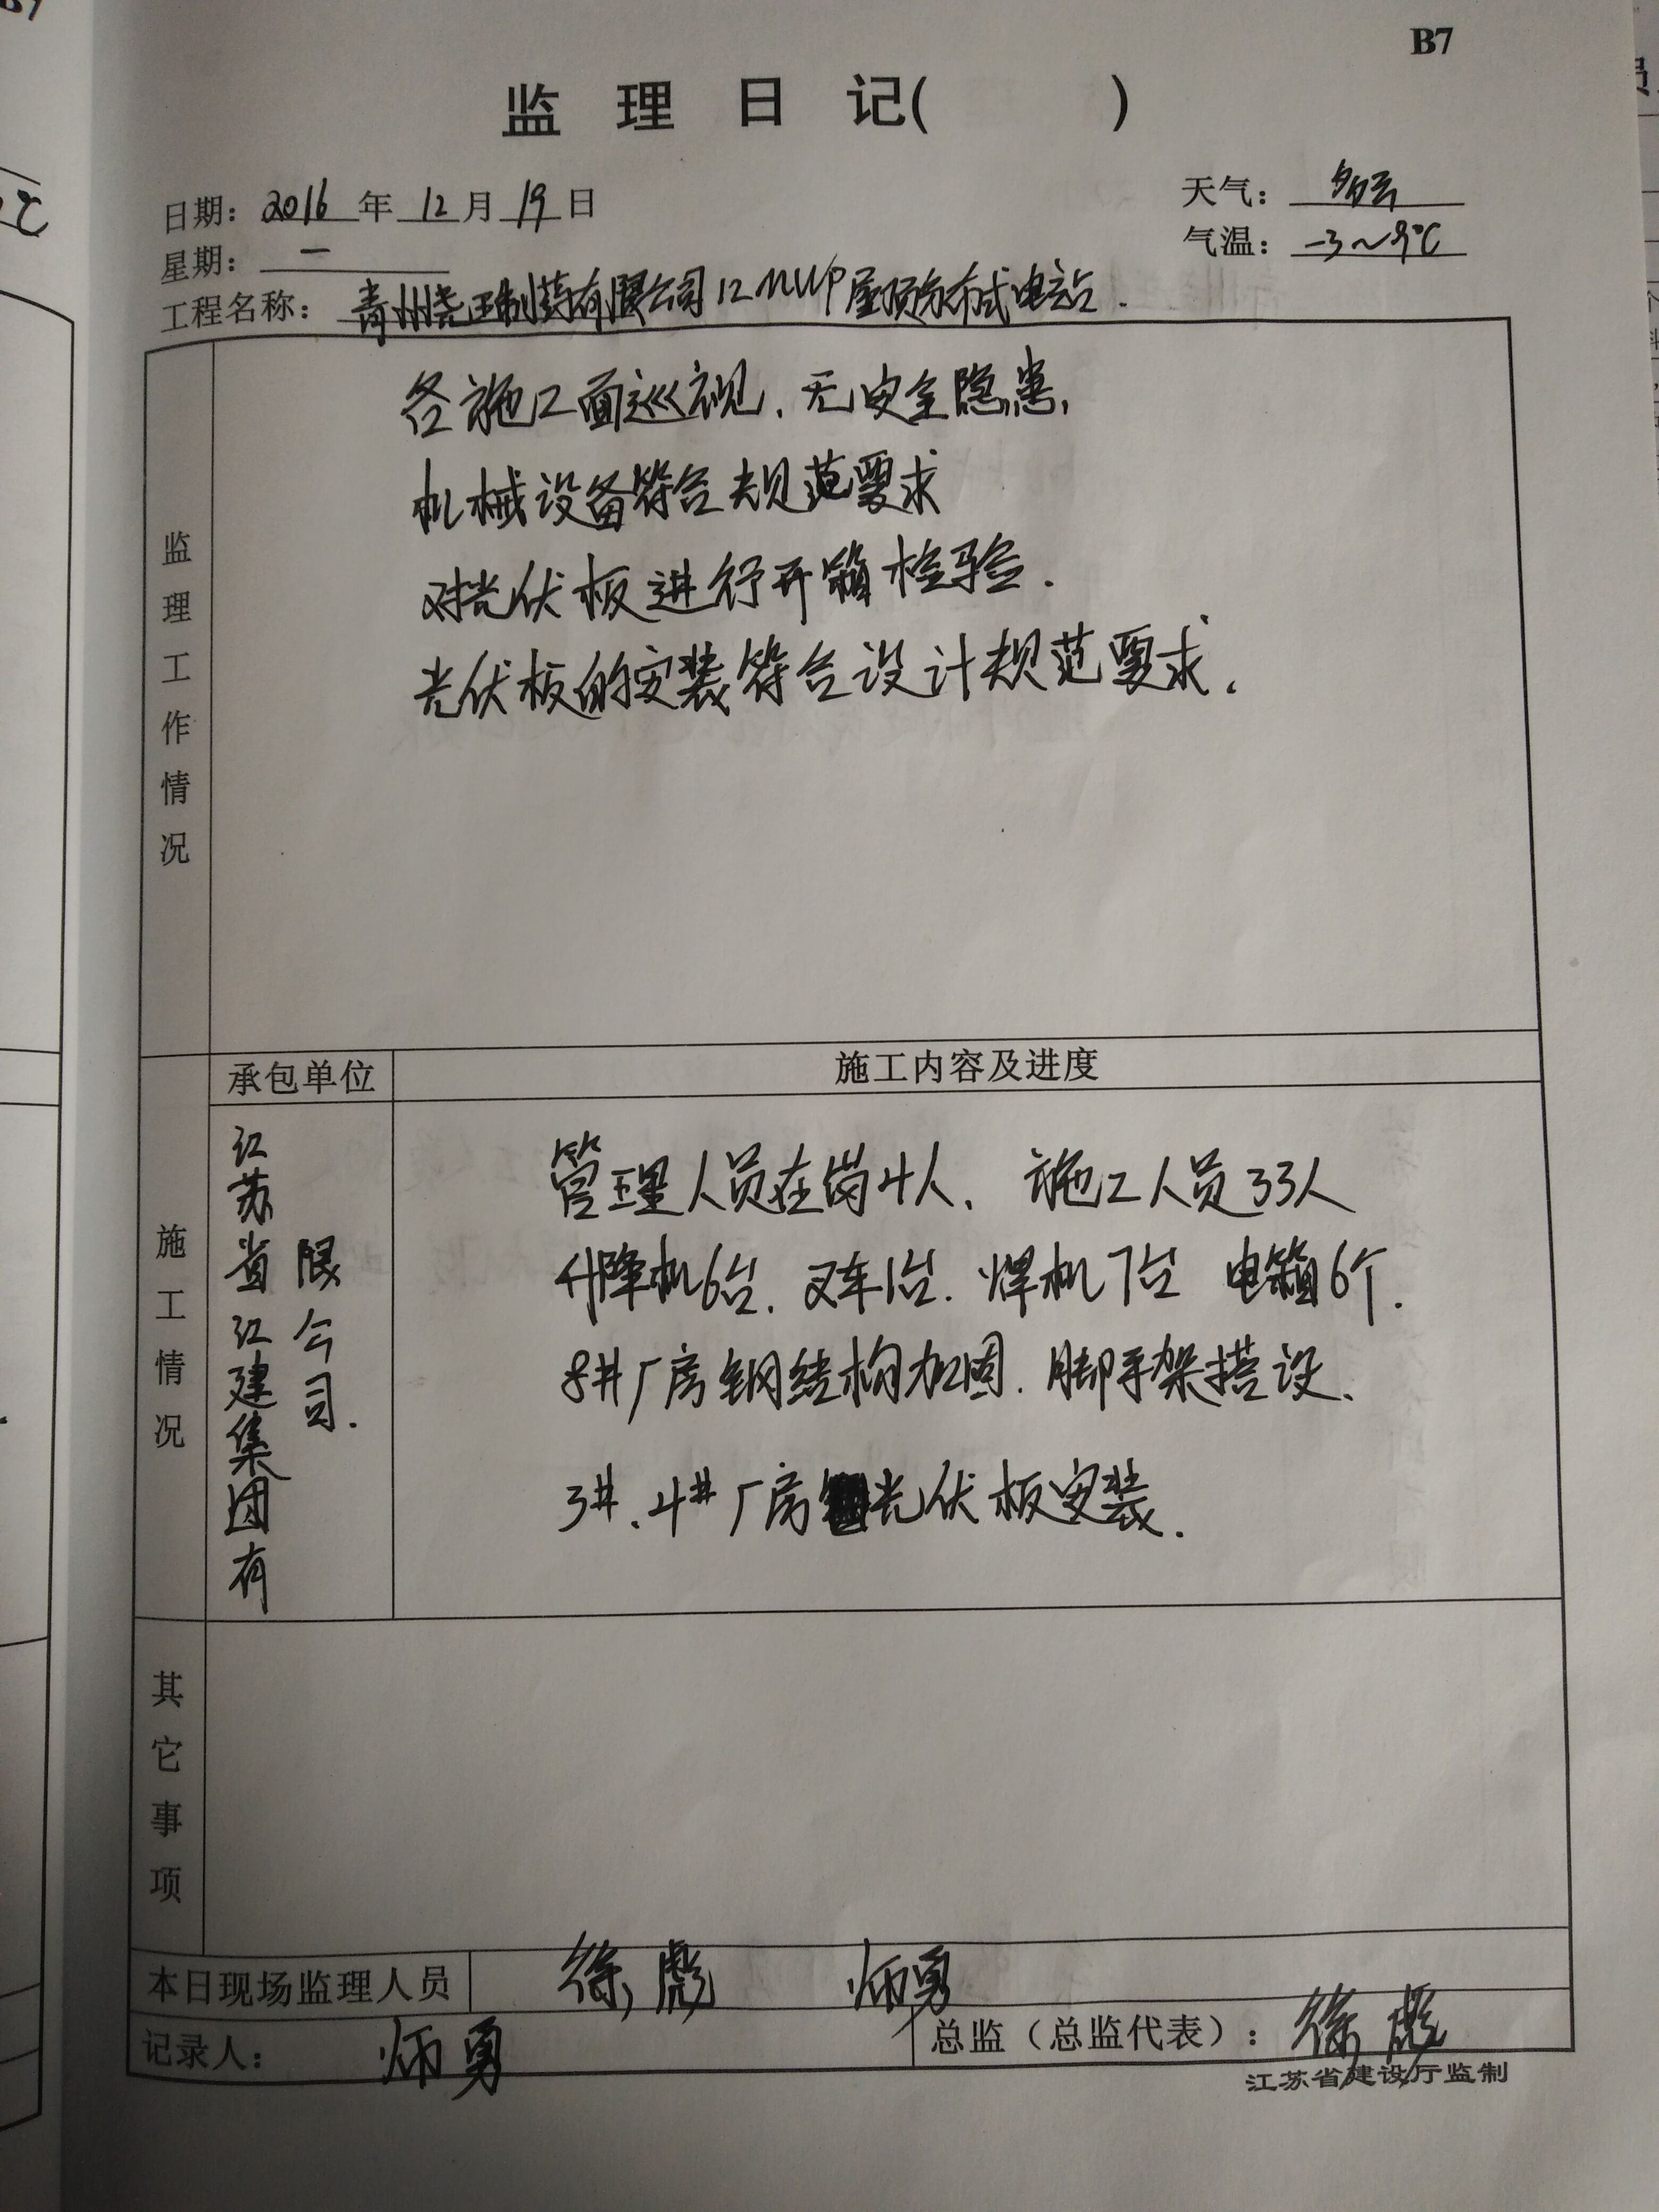 B7
监理日记( )
日期: 2016 年 12 月 19 日
天气: 多云
星期: 一
气温: -3~9℃
工程名称: 青州尧王制药有限公司12MWP屋顶分布式电站.
监理工作情况
各施工面巡视、无安全隐患,
机械设备符合规范要求
对光伏板进行开箱检验.
光伏板的安装符合设计规范要求.
承包单位
施工内容及进度
施工情况
江苏省江建集团有
限公司.
管理人员在岗4人、施工人员33人
升降机6台. 叉车1台. 焊机7台 电箱6个.
8#厂房钢结构加固. 脚手架搭设、
3#、4#厂房光伏板安装.
其它事项
本日现场监理人员 徐彪 炳勇
记录人: 炳勇
总监(总监代表): 徐彪
江苏省建设厅监制